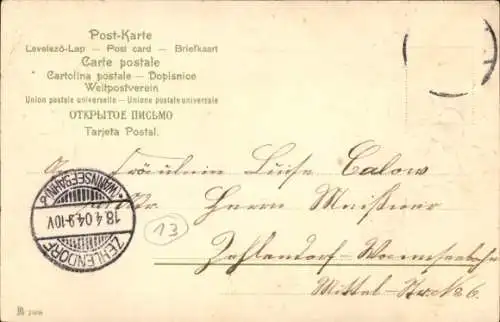 Post-Karte
Levelező-Lap — Post card — Briefkaart
Carte postale
Cartolina postale — Dopisnice
Weltpostverein
Union postale universelle — Unione postale universale
ОТКРЫТОЕ ПИСЬМО
Tarjeta Postal.
Fräulein Luise Calow
Herrn Meißner
Zehlendorf-Wannseebahn
Mittel-Str. № 6.
13
(WANNSEEBAHN)
18.4.04.9-10V
ZEHLENDORF